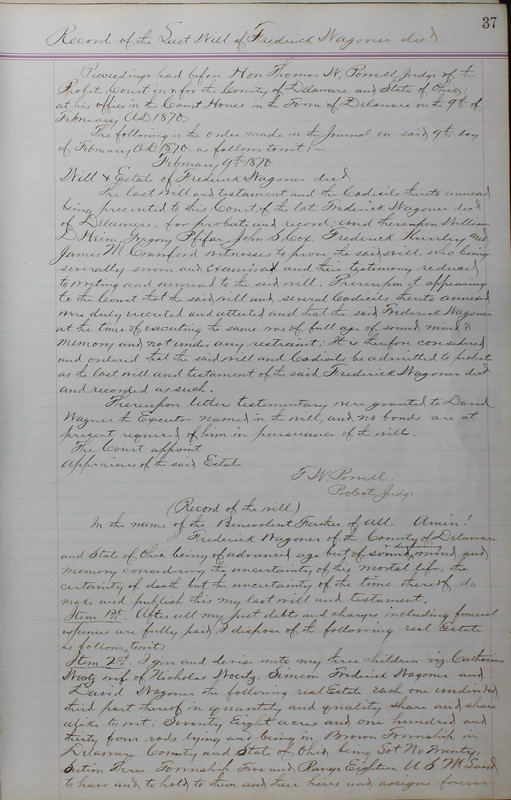 37
Record of the Last Will of Frederick Wagoner decd
Proceedings had before Hon Thomas W. Powell Judge of the
Probate Court in & for the County of Delaware and State of Ohio;
at his office in the Court House in the Town of Delaware on the 9th of
February AD 1870.
The following is the order made in the Journal on said 9th day
of February AD 1870 as follows towit:-
February 9th 1870
Will & Estate of Frederick Wagoner decd
The last will and testament and the Codicils thereto annexed
being presented to this Court, of the late Frederick Wagoner decd
of Delaware, for probate and record; and thereupon William
D Heim, Gregory Pfifer, John S. Cox, Frederick and
James M. Crawford witnesses to prove the said will, who being
severally sworn and examined and their testimony reduced
to writing and annexed to the said will. Thereupon it appearing
to the Court that the said will and several Codicils thereto annexed
were duly executed and attested and that the said Frederick Wagoner
at the time of executing the same was of full age of sound mind &
memory and not under any restraint. It is therefore considered
and ordered that the said will and Codicils be admitted to probate
as the last will and testament of the said Frederick Wagoner decd
and recorded as such.
Thereupon letters testamentary were granted to David
Wagner the Executor named in the will, and no bonds are at
present required of him in pursuance of the will.
The Court appoint
Appraisers of the said Estate
T. W. Powell
Probate Judge
(Record of the will)
In the name of the Benevolent Father of all. Amen!
Frederick Wagoner of the County of Delaware
and State of Ohio being of advanced age but of sound mind and
memory considering the uncertainty of this mortal life, the
certainty of death but the uncertainty of the time thereof do
make and publish this my last will and testament.
Item 1st. After all my just debt and charges including funeral
expenses are fully paid, I dispose of the following real Estate
as follows, towit:
Item 2d. I give and devise unto my three children viz. Catharine
Wertz wife of Nicholas Wertz, Simeon Frederick Wagoner and
David Wagoner the following real Estate each one undivided
third part thereof in quantity and quality share and share
alike to wit: Seventy Eight acres and one hundred and
thirty four rods lying and being in Brown Township in
Delaware County and State of Ohio being Lot No Twenty,
Section Three Township Five and Range Eighteen U S M. Land
to have and to hold to them and their heirs and assigns forever